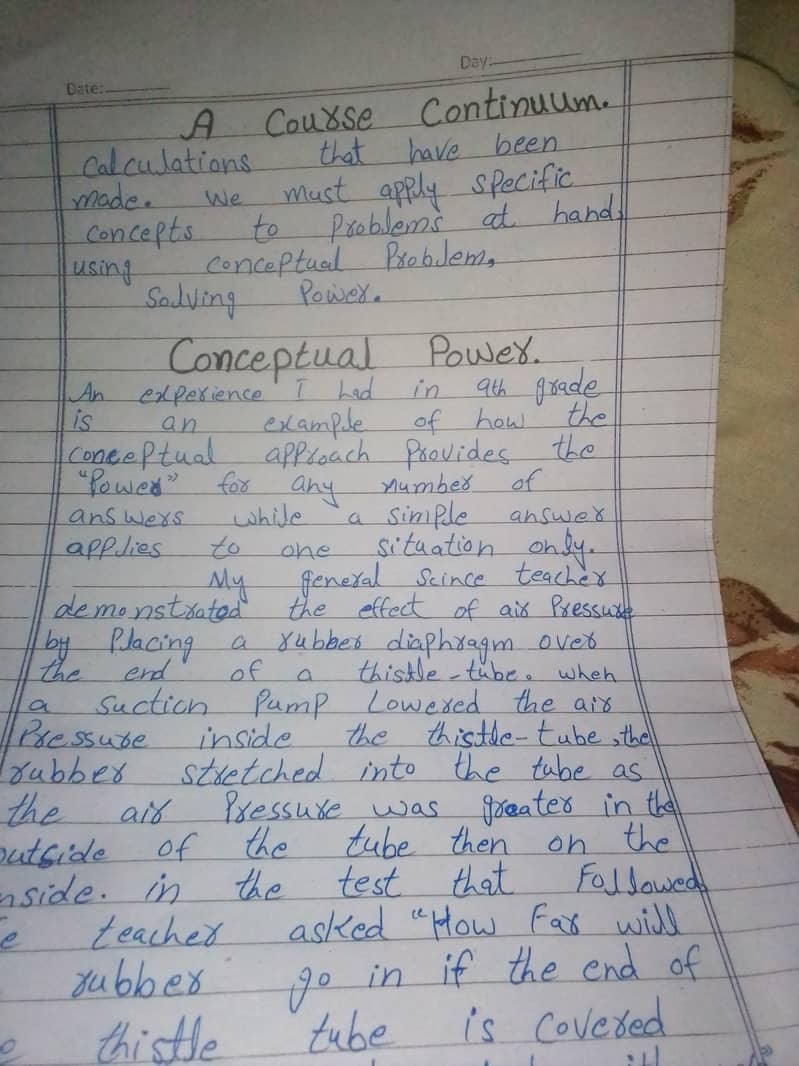 Date:
Day:
A Course Continuum.
Calculations that have been
made. We must apply specific
concepts to problems at hand,
using conceptual Problem,
Solving Power.
Conceptual Power.
An experience I had in 9th grade
is an example of how the
conceptual approach Provides the
"Power" for any number of
answers while a simple answer
applies to one situation only.
My general Scince teacher
demonstrated the effect of air Pressure
by Placing a rubber diaphragm over
the end of a thistle-tube. when
a suction Pump Lowered the air
Pressure inside the thistle-tube, the
rubber stretched into the tube as
the air Pressure was greater in the
outside of the tube then on the
nside. in the test that Followed
e teacher asked "How Far will
rubber go in if the end of
e thistle tube is covered